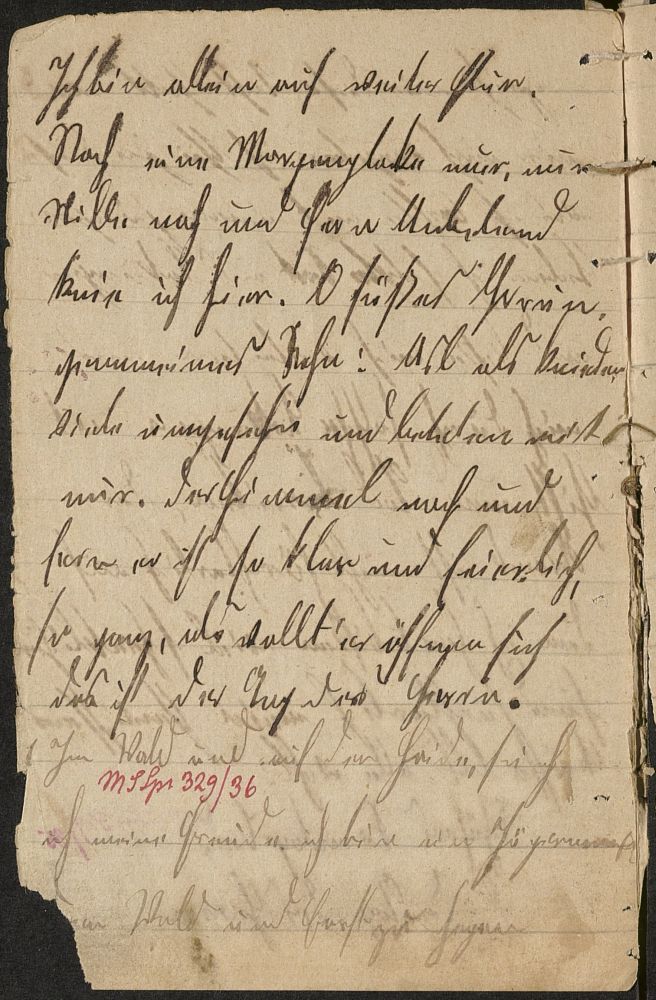 Ich bin allein auf weiter Flur.
Noch eine Morgenglocke nur, nun
Stille nah und fern Anbetend
knie ich hier. O süßes Graun,
geheimes Wehn: Als ob knieten
viele ungesehn und beteten mit
mir. Der Himmel nah und
fern er ist so klar und feierlich,
so ganz, als wollt er öffnen sich
das ist der Tag des Herrn.
Im Wald und auf der Heide, such
ich meine Freude ich bin ein Jägersmann
Wald und Forst zu hegen
MSSpr 329/36